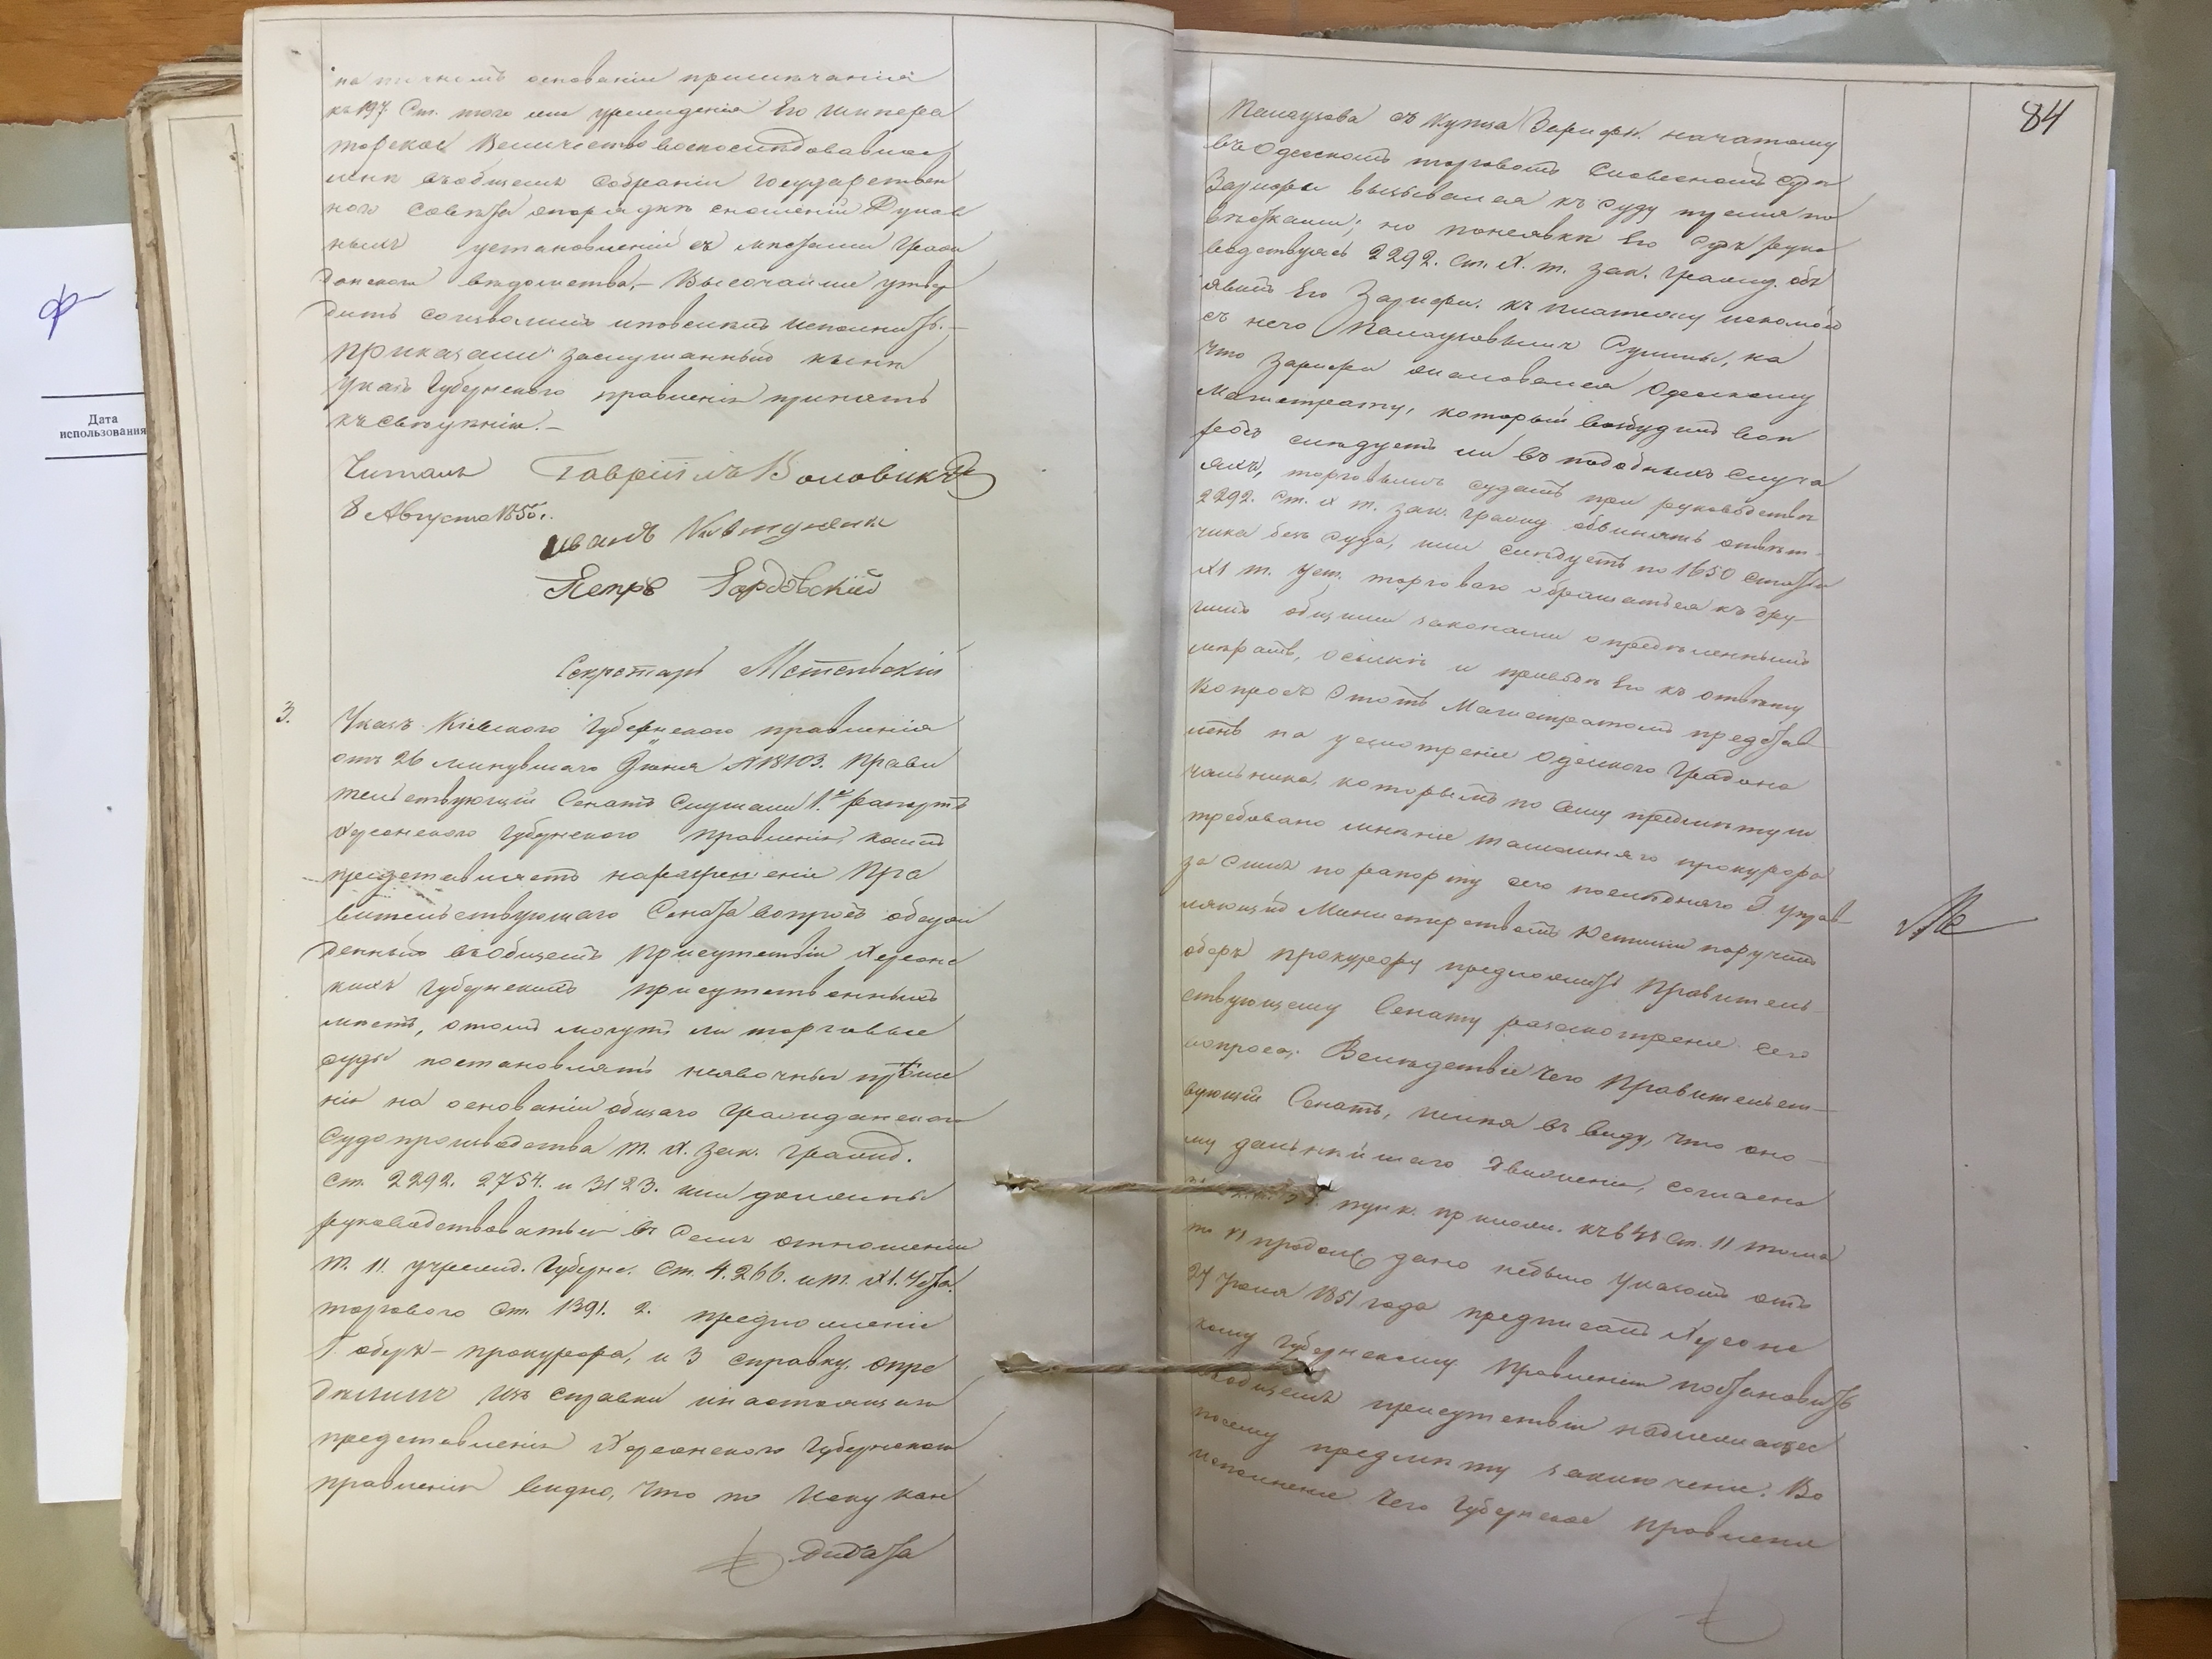 на точномъ основаніи примѣчанія
къ 197. Ст. того же учрежденія Его Импера
торское Величество воспослѣдовавшее
мнѣ въ общемъ Собраніи Государствен
наго Совѣта опорядкѣ сношеній Духов
ныхъ установленій съ мѣстами Граж
данскаго вѣдомства, – Высочайше утвер
дить соизволилъ и повелѣлъ исполнить. –
Приказали: заслушанный нынѣ
указъ Губернскаго правленія принять
къ свѣдѣнію. –
Читалъ Гавріилъ Воловикъ
8 Августа 185
Иванъ
Петръ
Секретарь
3. Указъ Кіевскаго Губернскаго правленія
отъ 26 минувшаго Іюня № 18103. Прави
тельствующій Сенатъ Слушали 1.е рапортъ
Херсонскаго Губернскаго Правленія, коимъ
представляетъ на разрѣшеніе Пра
вительствующаго Сената вопросъ обсуж
денный въ Общемъ Присутствіи Херсонс
кихъ Губернскихъ присутственныхъ
мѣстъ, о томъ могутъ ли торговые
суды постановлять неявочныя рѣше
нія на основаніи общаго Гражданскаго
Судопроизводства т. X. зак. Гражд.
ст. 2292. 2754. и 3123. или должны
руководствоваться въ семъ отношеніи
т. 11. учрежд. Губерн. Ст. 4.266. и т. XI. Уста.
торговаго ст. 1391. 2. предложеніе
Г. оберъ-прокурора, и 3 справку. Опре
дѣлили: Изъ справки и настоящаго
представленія Херсонскаго Губернскаго
правленія видно, что по иску кан
дидата
84
Палаузова съ купца Зарифи. начатому
въ Одесскомъ торговомъ Словесномъ Судѣ
Зарифи вызывался къ суду тремя по
вѣстками; но по неявкѣ Его Судъ руко
водствуясь 2292. ст. X. т. зак. Гражд. объ
явилъ Его Зарифи. къ платежу искомой
съ него Палаузовымъ Суммы, на
что Зарифи жаловался Одесскому
Магистрату, который возбудилъ воп
росъ слѣдуетъ ли въ подобныхъ случа
яхъ, торговымъ судамъ при руководствѣ
2292. Ст. X т. зак. Гражд обвинять отвѣт-
чика безъ суда, или слѣдуетъ по 1650 статьи
XI т. Уст. торговаго обращаться къ дру-
гимъ общими законами опредѣленнымъ
мѣрамъ, о сыскѣ и приводѣ Его къ отвѣту
Вопросъ этотъ Магистратомъ представ
ленъ на усмотреніе Одесскаго Градона
чальника, которымъ по сему предмету и
требовано мнѣніе тамошняго прокурора
за симъ по рапорту сего послѣдняго Г. Управ
ляющій Министерствомъ Юстиціи поручилъ
оберъ прокурору предложить Правитель
ствующему Сенату разсмотреніе сего
вопроса. Вслѣдствіе чего Правительст-
вующій Сенатъ, имѣя въ виду, что оно-
му дальнѣйшаго движенія, согласно
пунк. примѣч. къ ст. 11 тома
по продолж дано небыло Указомъ отъ
27 Іюня 1851 года предписалъ Херсонс
кому Губернскому Правленію постановить
въ общемъ присутствіи надлежащее
по сему предмету заключеніе. Во
исполненіе чего Губернское правленіе
Дата
использования